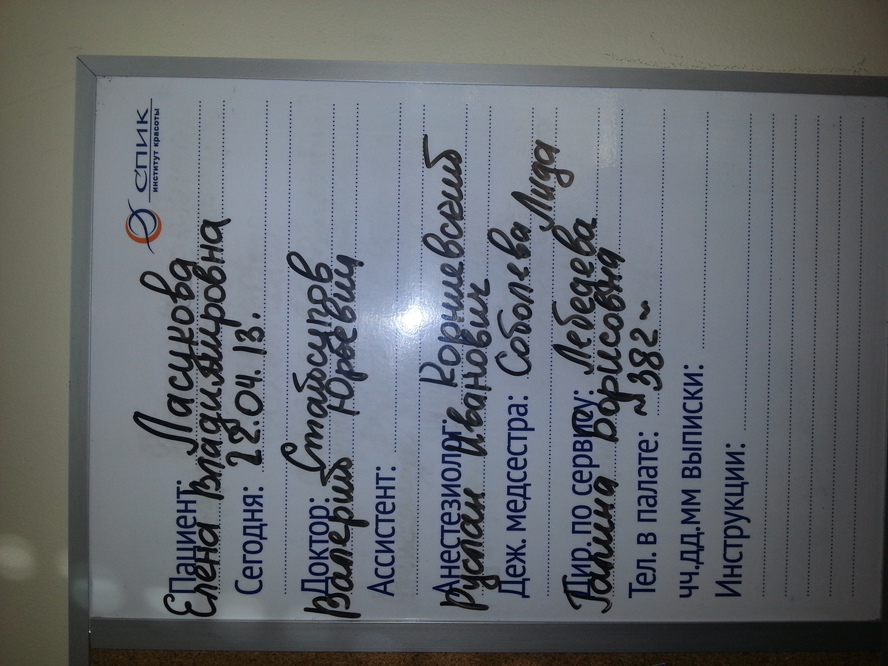 СПИК
институт красоты
Пациент: Ласукова
Елена Владимировна
Сегодня: 22.04.13.
Доктор: Стайсупов
Валерий Юрьевич
Ассистент:
Анестезиолог: Корниевский
Руслан Иванович
Деж. медсестра: Соболева Лида
Дир. по сервису: Лебедева
Галина Борисовна
Тел. в палате: ~382~
чч.дд.мм выписки:
Инструкции: